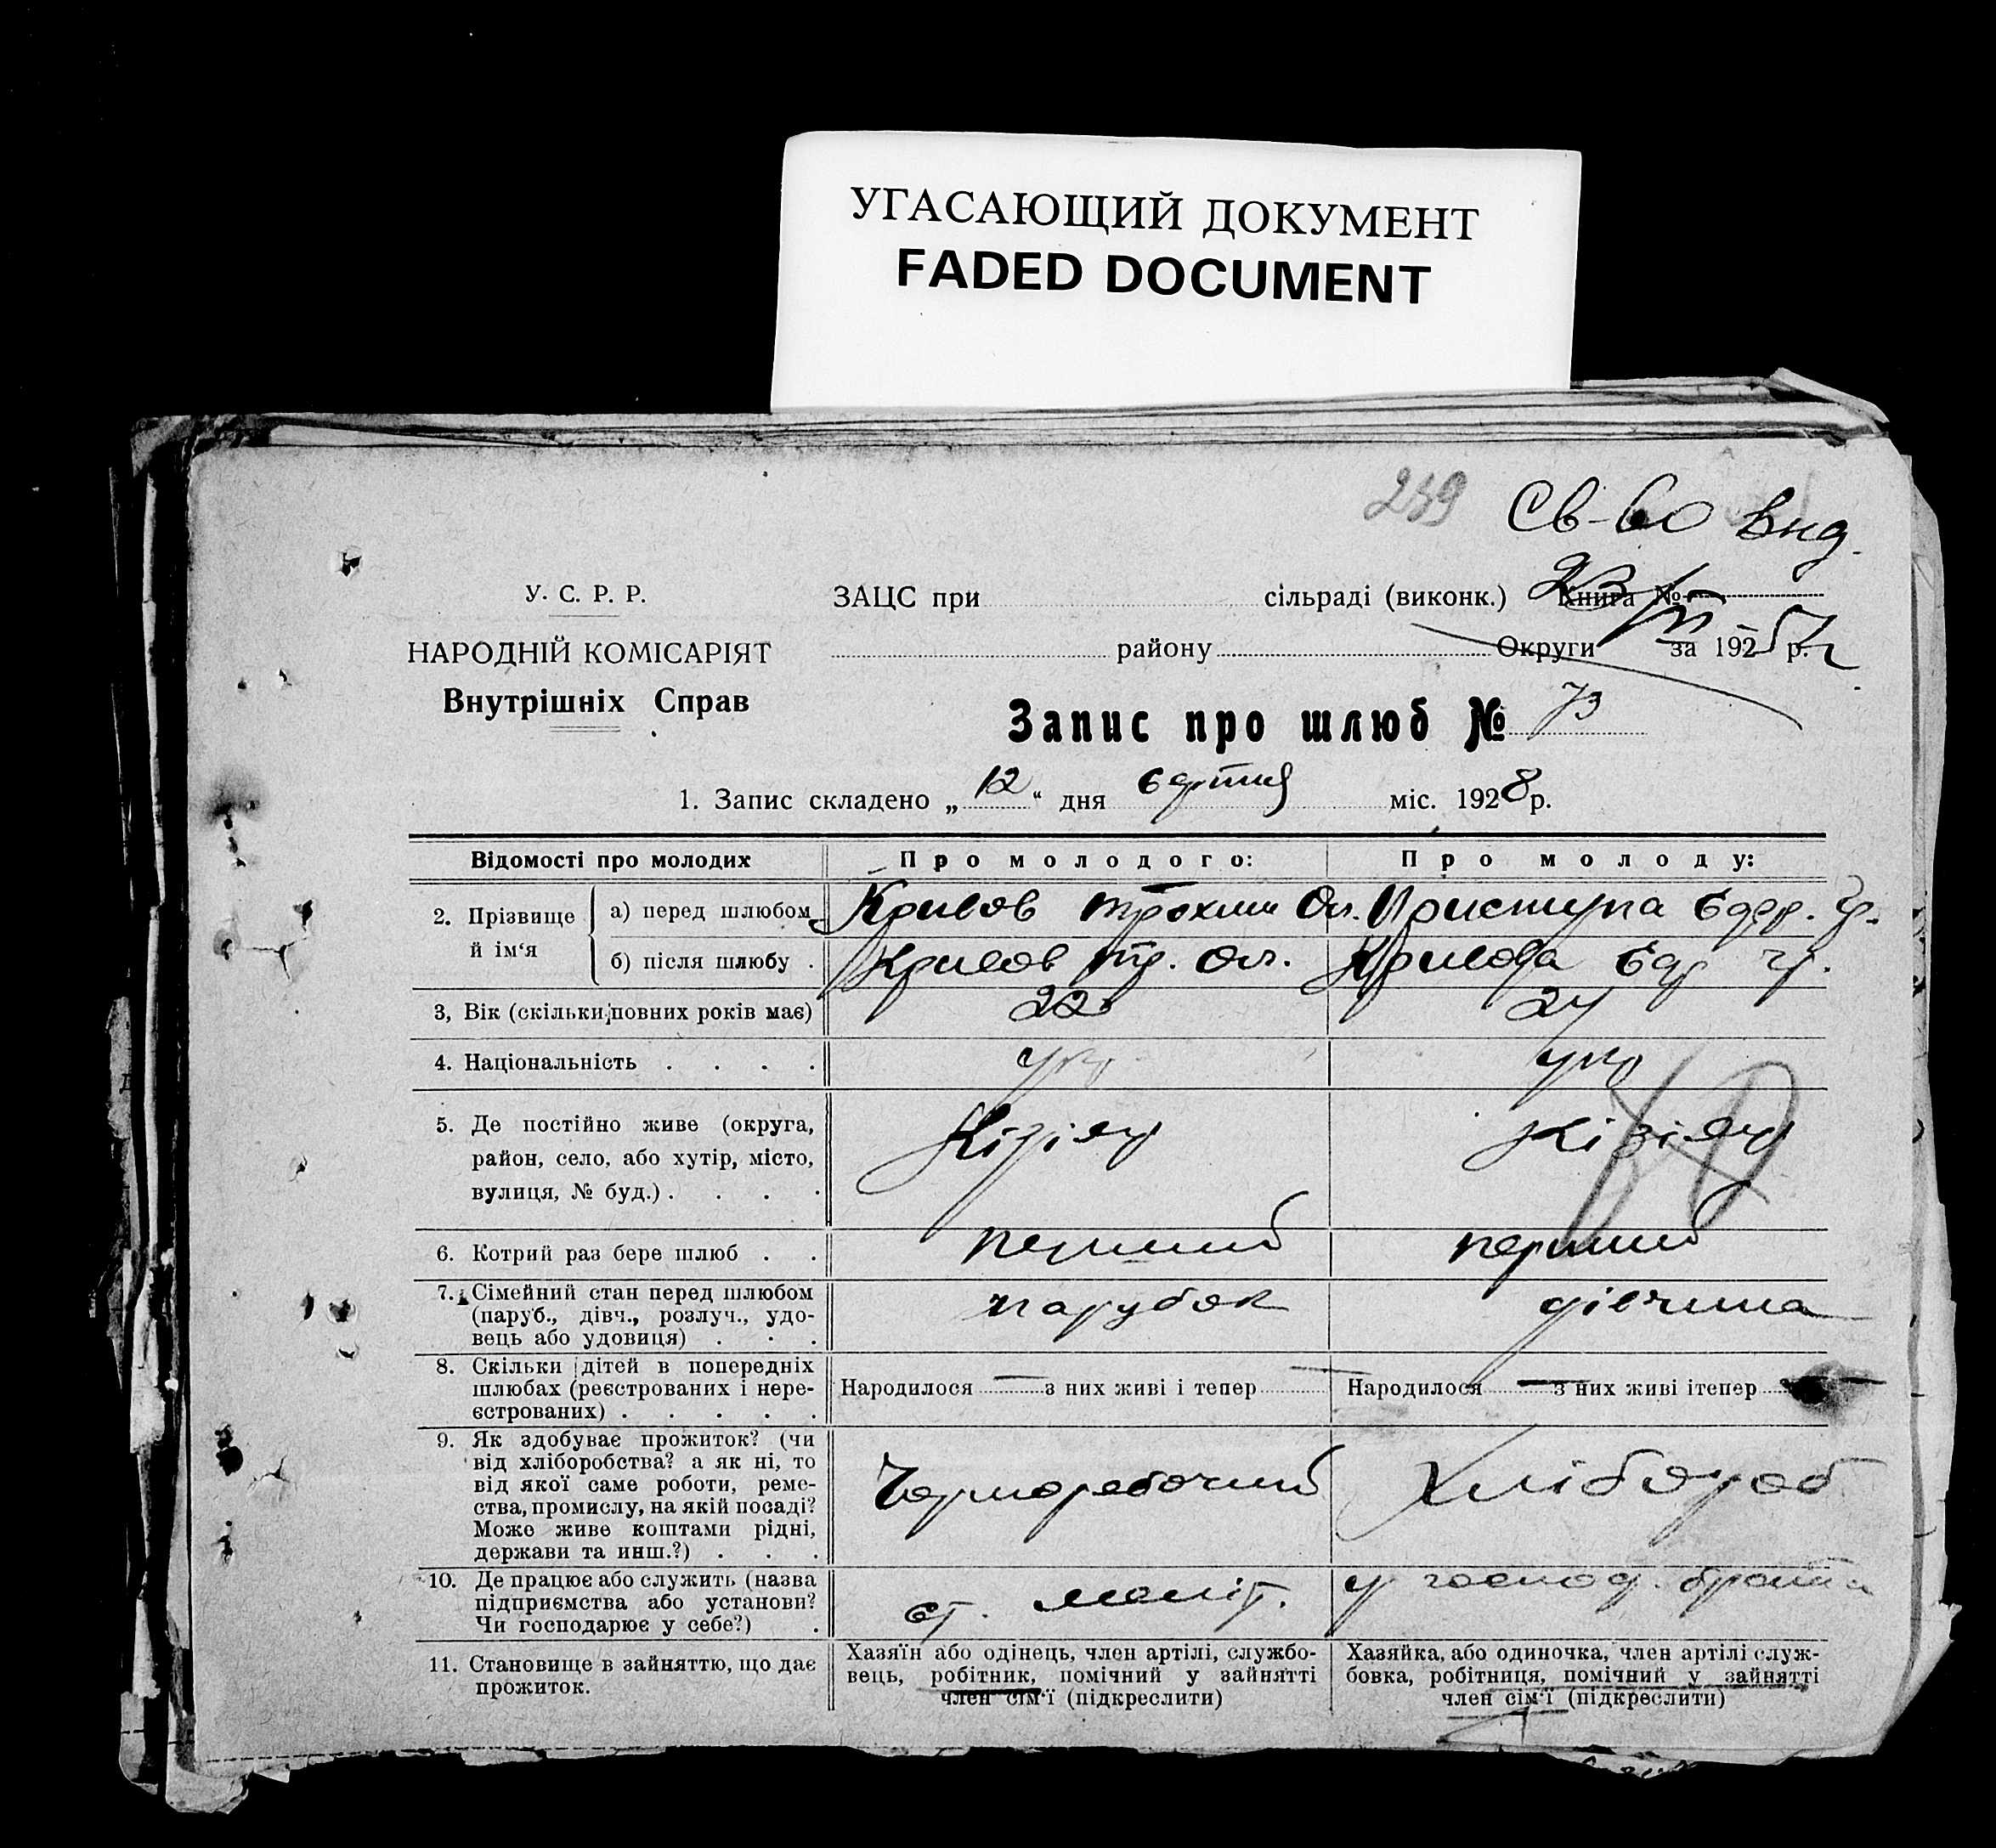 УГАСАЮЩИЙ ДОКУМЕНТ
FADED DOCUMENT
239 Св-во вид.
У. С. Р. Р.
ЗАЦС при сільраді (виконк.) Книга №
23/VI
НАРОДНІЙ КОМІСАРІЯТ
району Округи за 192 р.
Внутрішніх Справ
Запис про шлюб № 73
1. Запис складено „ 12 “ дня міс. 1928 р.
Відомості про молодих Про молодого: Про молоду:
2. Прізвище й ім‘я
а) перед шлюбом Крилов Трохим Ол. Приступа Євдр. Гр.
б) після шлюбу . Крилов Тр. Ол. Крилова Євд Гр.
3, Вік (скільки повних років має) 22 24
4. Національність . . . . укр укр
5. Де постійно живе (округа,
район, село, або хутір, місто,
вулиця, № буд.) . . . .
Кізіяр Кізіяр
6. Котрий раз бере шлюб . . перший перший
7. Сімейний стан перед шлюбом
(паруб., дівч., розлуч., удо-
вець або удовиця) . . .
парубок дівчина
8. Скільки дітей в попередніх
шлюбах (реєстрованих і нере-
єстрованих) . . . . .
Народилося — з них живі і тепер — Народилося — з них живі ітепер —
9. Як здобуває прожиток? (чи
від хліборобства? а як ні, то
від якої саме роботи, реме-
ства, промислу, на якій посаді?
Може живе коштами рідні,
держави та инш.?) . . .
Чорноробочий Хлібороб
10. Де працює або служить (назва
підприємства або установи?
Чи господарює у себе?) .
ст. Меліт. у господ. брата
11. Становище в зайняттю, що дає
прожиток.
Хазяїн або одінець, член артілі, службо-
вець, робітник, помічний у зайнятті
член сім‘ї (підкреслити)
Хазяйка, або одиночка, член артілі служ-
бовка, робітниця, помічний у зайнятті
член сім‘ї (підкреслити)